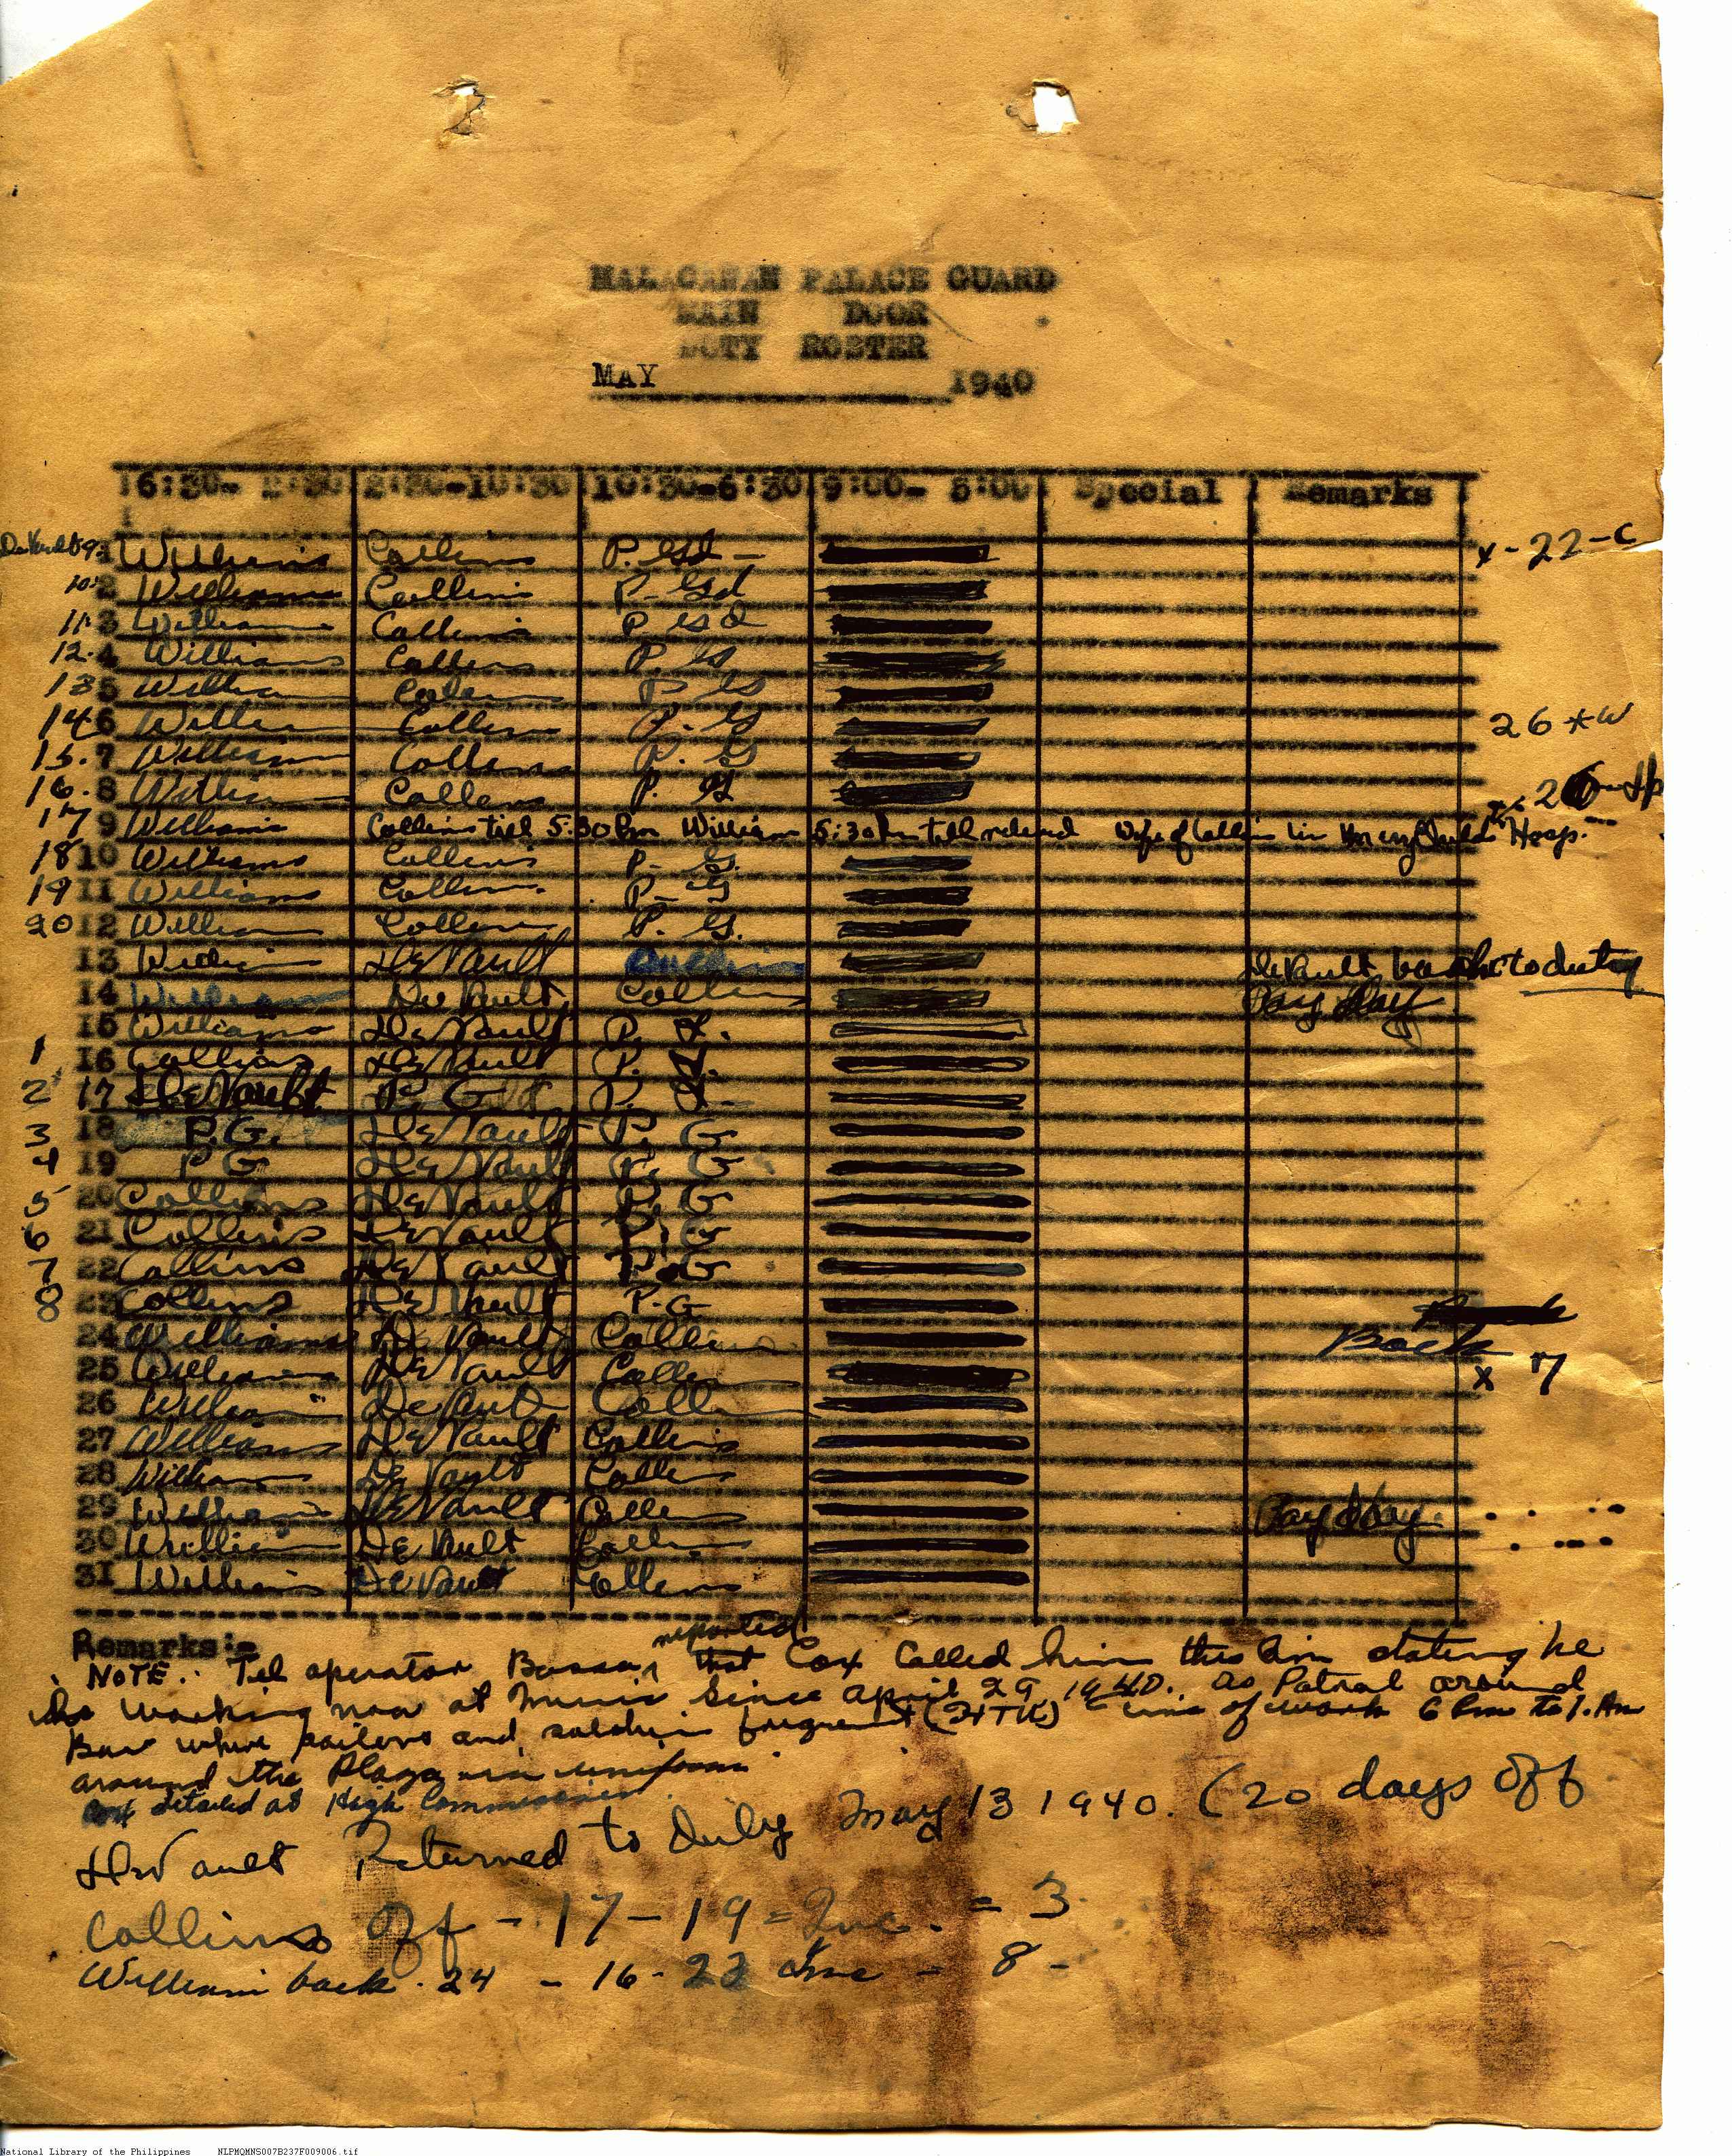 MALACAÑAN PALACE GUARD
MAIN DOOR
DUTY ROSTER
MAY 1940
6:30- 2:30 2:30-10:30 10:30-6:30 9:00- 5:00 Special Remarks
DeVault 9 1 Williams Collins P. Gd - x-22-C
10 2 Williams Collins P- Gd
11 3 William Collins P Gd
12. 4 Williams Collins P. G
13 5 William Collins P G
14 6 William Collins P. G 26 * W
15. 7 William Collins P. G
16. 8 William Collins P. G
17 9 Williams Collins till 5:30 Pm William 5:30 Pm till relieved Wife of Collins in Hosp.
18 10 Williams Collins P- G.
19 11 Williams Collins. P- G
20 12 William Collins P. G.
13 William DeVault Collins DeVault back to duty
14 William De Vault Collins Pay Day
15 Williams DeVault P.
1 16 Collins DeVault P.
2 17 DeVault P. G P.
3 18 P.G. DeVault P. G
4 19 P G DeVault P. G
5 20 Collins DeVault P. G
6 21 Collins DeVault P. G
7 22 Collins DeVault P. G
8 23 Collins DeVault P.G
24 Williams De Vault Collins Back
25 Williams DeVault Collins x 7
26 William DeVault Collins
27 Williams DeVault Collins
28 William DeVault Collins
29 William DeVault Collins Pay Day.
30 William DeVault Collins
31 William DeVault Collins
Remarks:-
NOTE: Tel operator reported that Cox Called him this Am stating he
is working now at since April 29 1940. as Patrol around
Bar where sailors and soldiers frequent of work 6 Pm to 1. Am
around the Plaza in uniform
Cox detailed at High Commissioner.
DeVault Returned to duty May 13 1940. (20 days Off
Collins Off - 17-19 = Inc. = 3
William back. 24 - 16-23 Inc - 8 -
National Library of the Philippines NLPMQMNS007B237F009006.tif